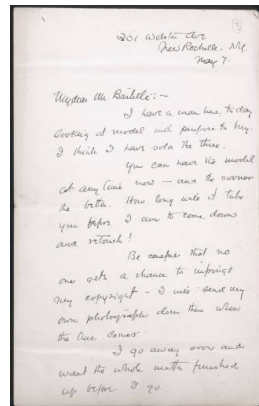 301 Webster Ave
New Rochelle. N.Y.
May 7.
My dear Mr. :-
I have a man here to day
looking at model with purpose to buy.
I think I have sold the three.
You can have the model
at any time now - and the sooner
the better. How long will it take
you before I am to come down
and retouch!
Be careful that no
one gets a chance to infringe
my copyright - I will send my
own photographer down there when
the time comes.
I go away soon and
want the whole matter finished
up before I go.